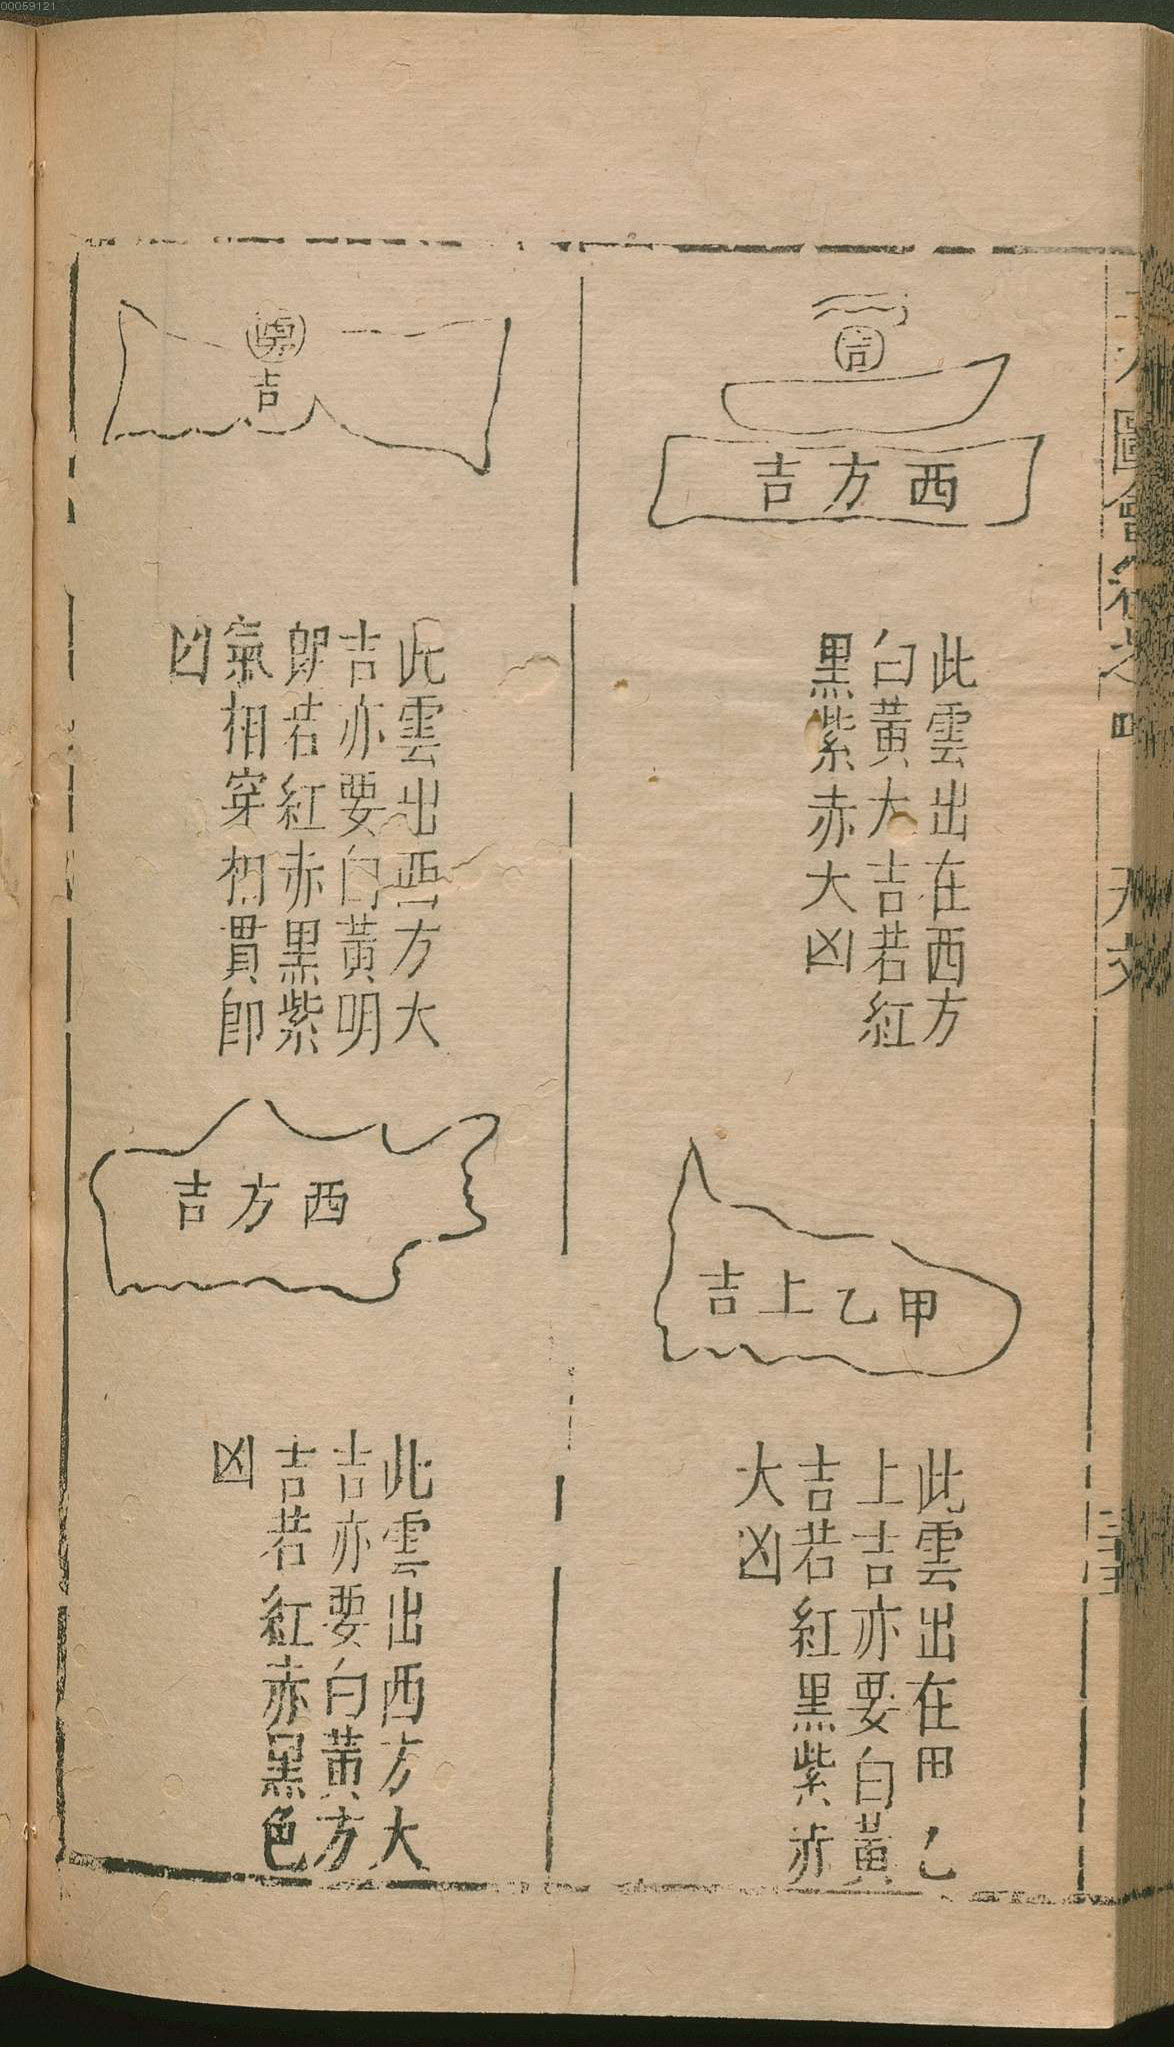 00059121
吉
西方吉
此雲出在西方
白黃大吉若紅
黑紫赤大凶
甲乙上吉
此雲出在甲乙
上吉亦要白黃
吉若紅黑紫赤
大凶
吉
此雲出西方大
吉亦要白黃明
朗若紅赤黑紫
氣相穿相貫即
凶
西方吉
此雲出西方大
吉亦要白黃方
吉若紅赤黑色
凶
圖會